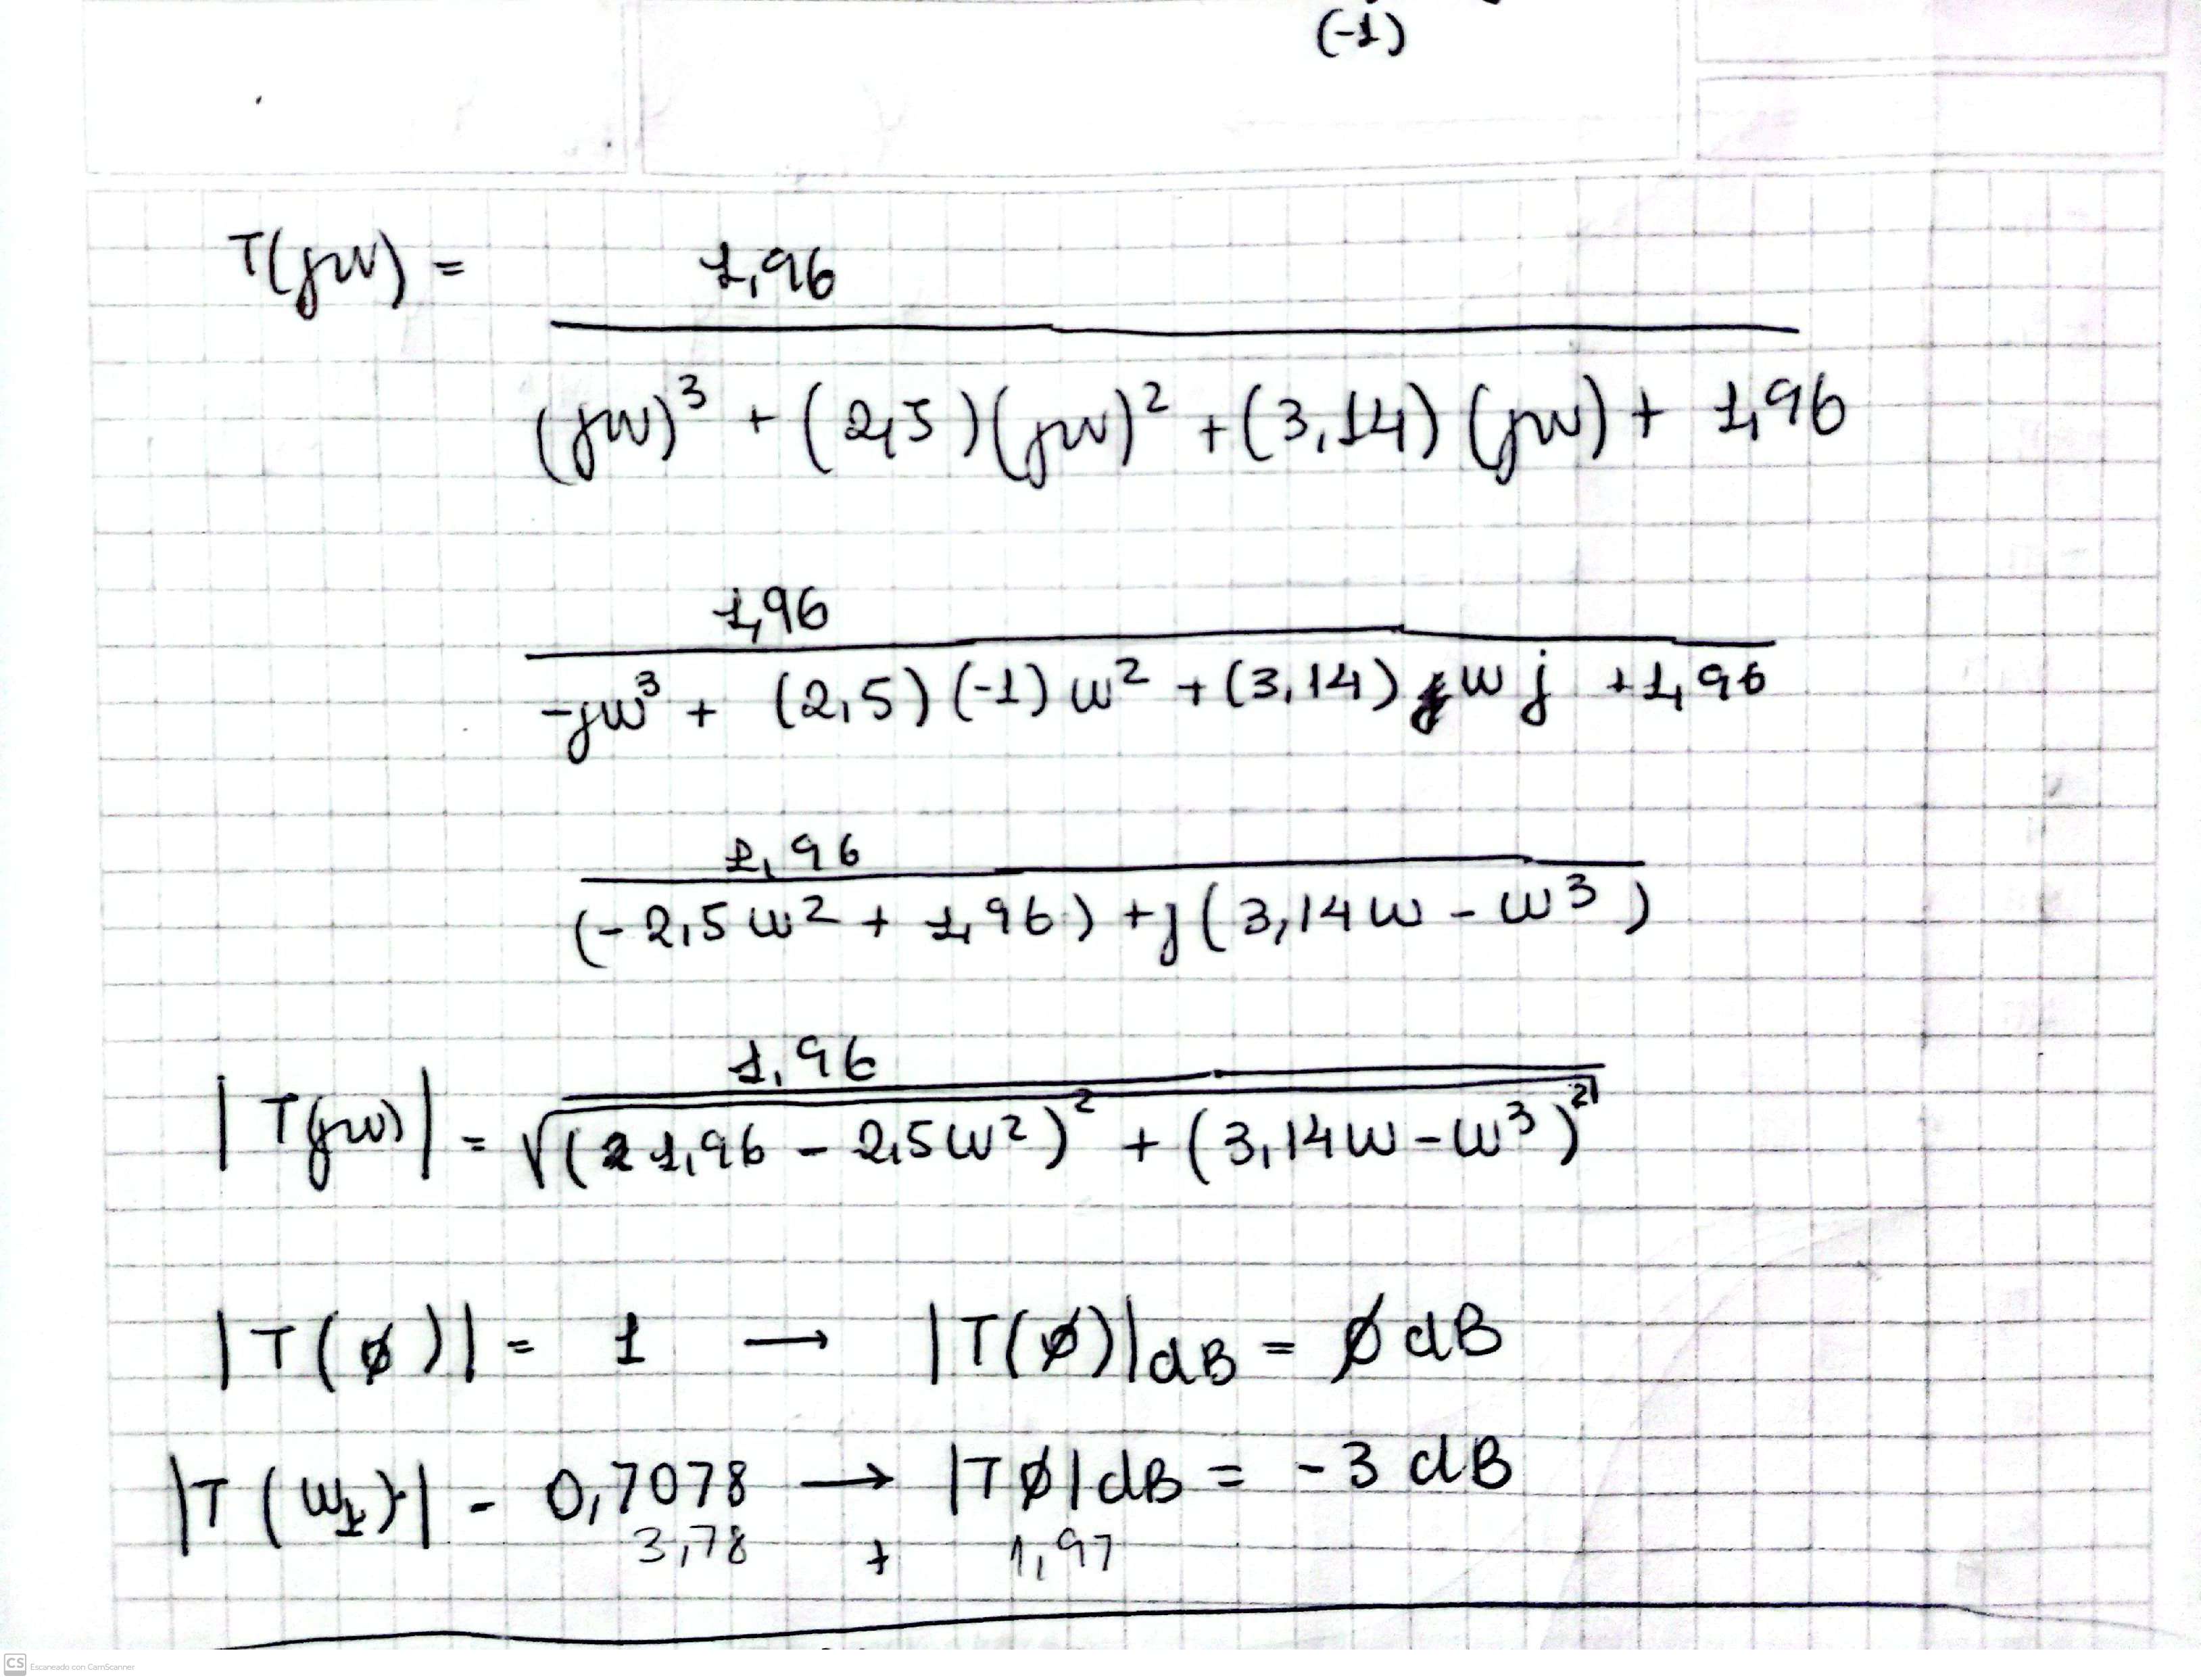 (-1)
T(jw) = 1,96
(jw)³ + (2,5)(jw)² + (3,14)(jw) + 1,96
1,96
-jw³ + (2,5)(-1)w² + (3,14) w j + 1,96
1,96
(-2,5w² + 1,96) + j(3,14w - w³)
1,96
|T(jw)| = √(1,96 - 2,5w²)² + (3,14w - w³)²
|T(ø)| = 1 → |T(ø)|dB = ø dB
|T(w₁)| - 0,7078 → |Tø|dB = -3 dB
3,78 + 1,97
CS Escaneado con CamScanner